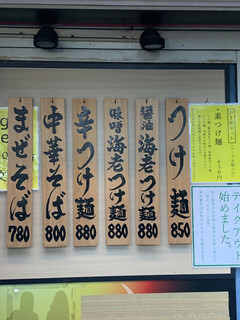 つけ麺 850
醤油海老つけ麺 880
味噌海老つけ麺 880
辛つけ麺 880
中華そば 800
まぜそば 780
素つけ麺
テイクアウト
始めました。